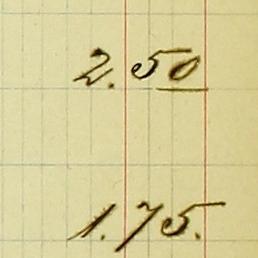 2.50
1.75.